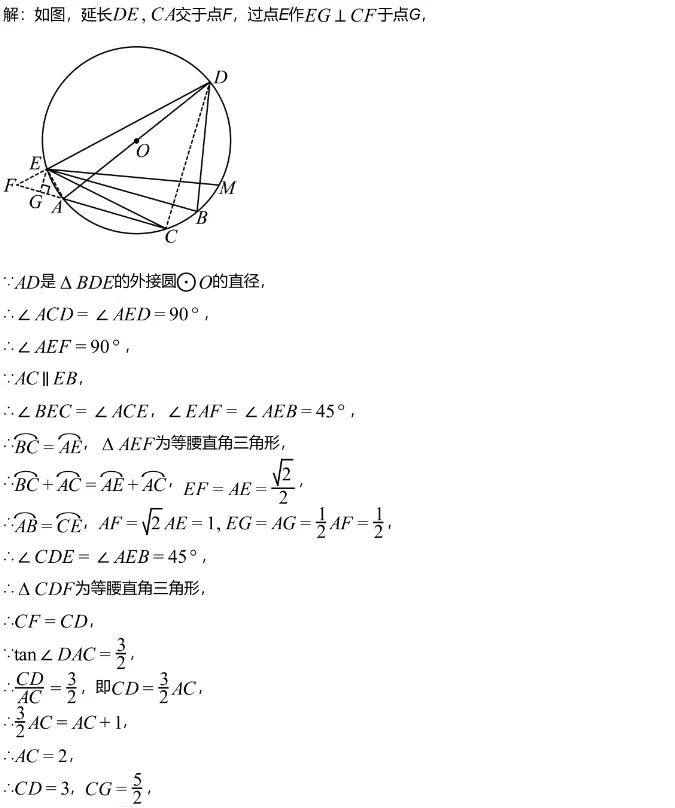 解：如图，延长DE, CA交于点F，过点E作EG⊥CF于点G，
D
O
E
F
M
G
A
B
C
∵AD是ΔBDE的外接圆⊙O的直径，
∴∠ACD=∠AED=90°，
∴∠AEF=90°，
∵AC∥EB，
∴∠BEC=∠ACE，∠EAF=∠AEB=45°，
∴⌒BC=⌒AE，ΔAEF为等腰直角三角形，
∴⌒BC+⌒AC=⌒AE+⌒AC，EF=AE=√2/2，
∴⌒AB=⌒CE，AF=√2AE=1, EG=AG=1/2AF=1/2，
∴∠CDE=∠AEB=45°，
∴ΔCDF为等腰直角三角形，
∴CF=CD，
∵tan∠DAC=3/2，
∴CD/AC=3/2，即CD=3/2AC，
∴3/2AC=AC+1，
∴AC=2，
∴CD=3，CG=5/2，